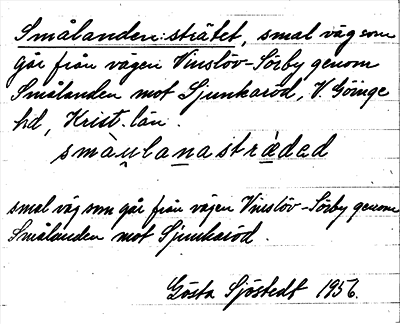 Smålanden:strätet, smal väg som
går från vägen Vinslöv-Sörby genom
Smålanden mot Ljunkaröd, V. Göinge
hd, Krist. län.
smàulanasträdəd
smal väg som går från vägen Vinslöv-Sörby genom
Smålanden mot Ljunkaröd.
Gösta Sjöstedt 1956.